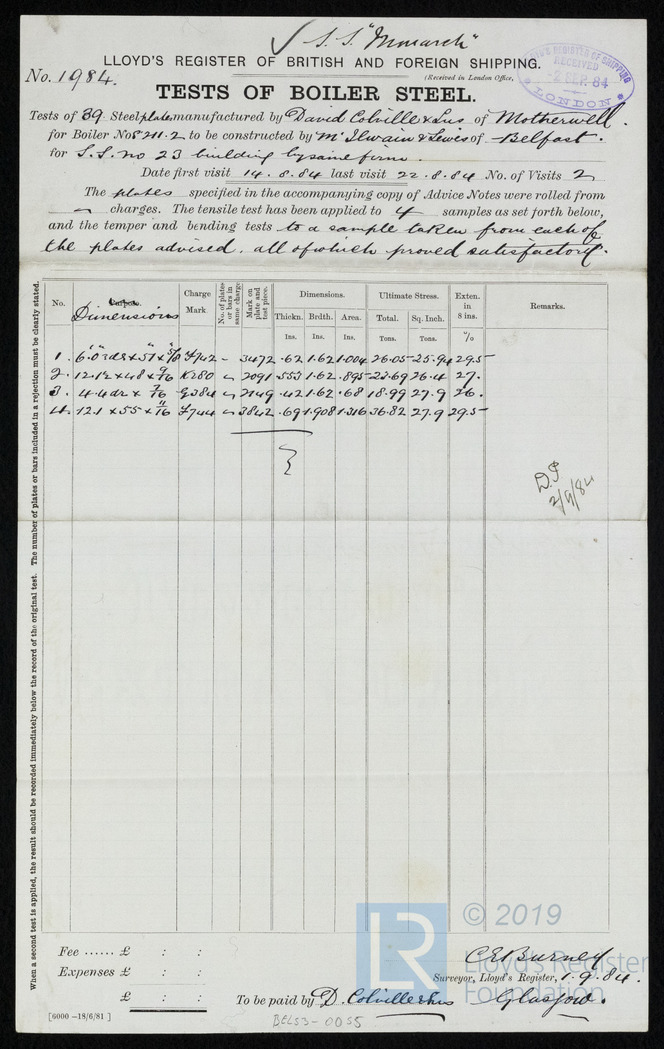 ✓ S.S. "Monarch"
LLOYD'S REGISTER OF BRITISH AND FOREIGN SHIPPING.
No. 1984.
(Received in London Office,
LLOYD'S REGISTER OF SHIPPING RECEIVED 2 SEP. 84 LONDON
TESTS OF BOILER STEEL.
Tests of 39 Steel plates manufactured by David Colville & Sns of Motherwell.
for Boiler Nos 211.2 to be constructed by Mc Ilwain & Lewis of Belfast.
for S.S. no 23 building by same firm.
Date first visit 14.8.84 last visit 22.8.84 No. of Visits 2
The plates specified in the accompanying copy of Advice Notes were rolled from
charges. The tensile test has been applied to 4 samples as set forth below,
and the temper and bending tests to a sample taken from each of
the plates advised. all of which proved satisfactory.
When a second test is applied, the result should be recorded immediately below the record of the original test. The number of plates or bars included in a rejection must be clearly stated.
No. Dimensions Charge Mark. No. of plates or bars in same charge Mark on plate and test piece. Dimensions. Ultimate Stress. Exten. in 8 ins. Remarks.
Thickn. Brdth. Area. Total. Sq. Inch.
Ins. Ins. Ins. Tons. Tons. %
1. 6.0 x 57 x 5/8 7742 - 3472 .62 1.62 1.004 26.05 25.94 29.5
2. 12.12 x 48 x 9/16 K280 2091 .553 1.62 .895 23.69 26.4 27.
3. 4.4 dr x 7/16 G384 2149 .42 1.62 .68 18.99 27.9 26.
4. 12.1 x 55 x 11/16 7744 3842 .69 1.908 1.316 36.82 27.9 29.5
2/9/84
© 2019
LR
Lloyd's Register
Foundation
Fee ...... £ : :
Expenses £ : :
£ : :
C E Burney
Surveyor, Lloyd's Register, 1.9.84.
To be paid by D. Colville & Sns Glasgow.
[6000 -18/6/81]
BEL53-0055